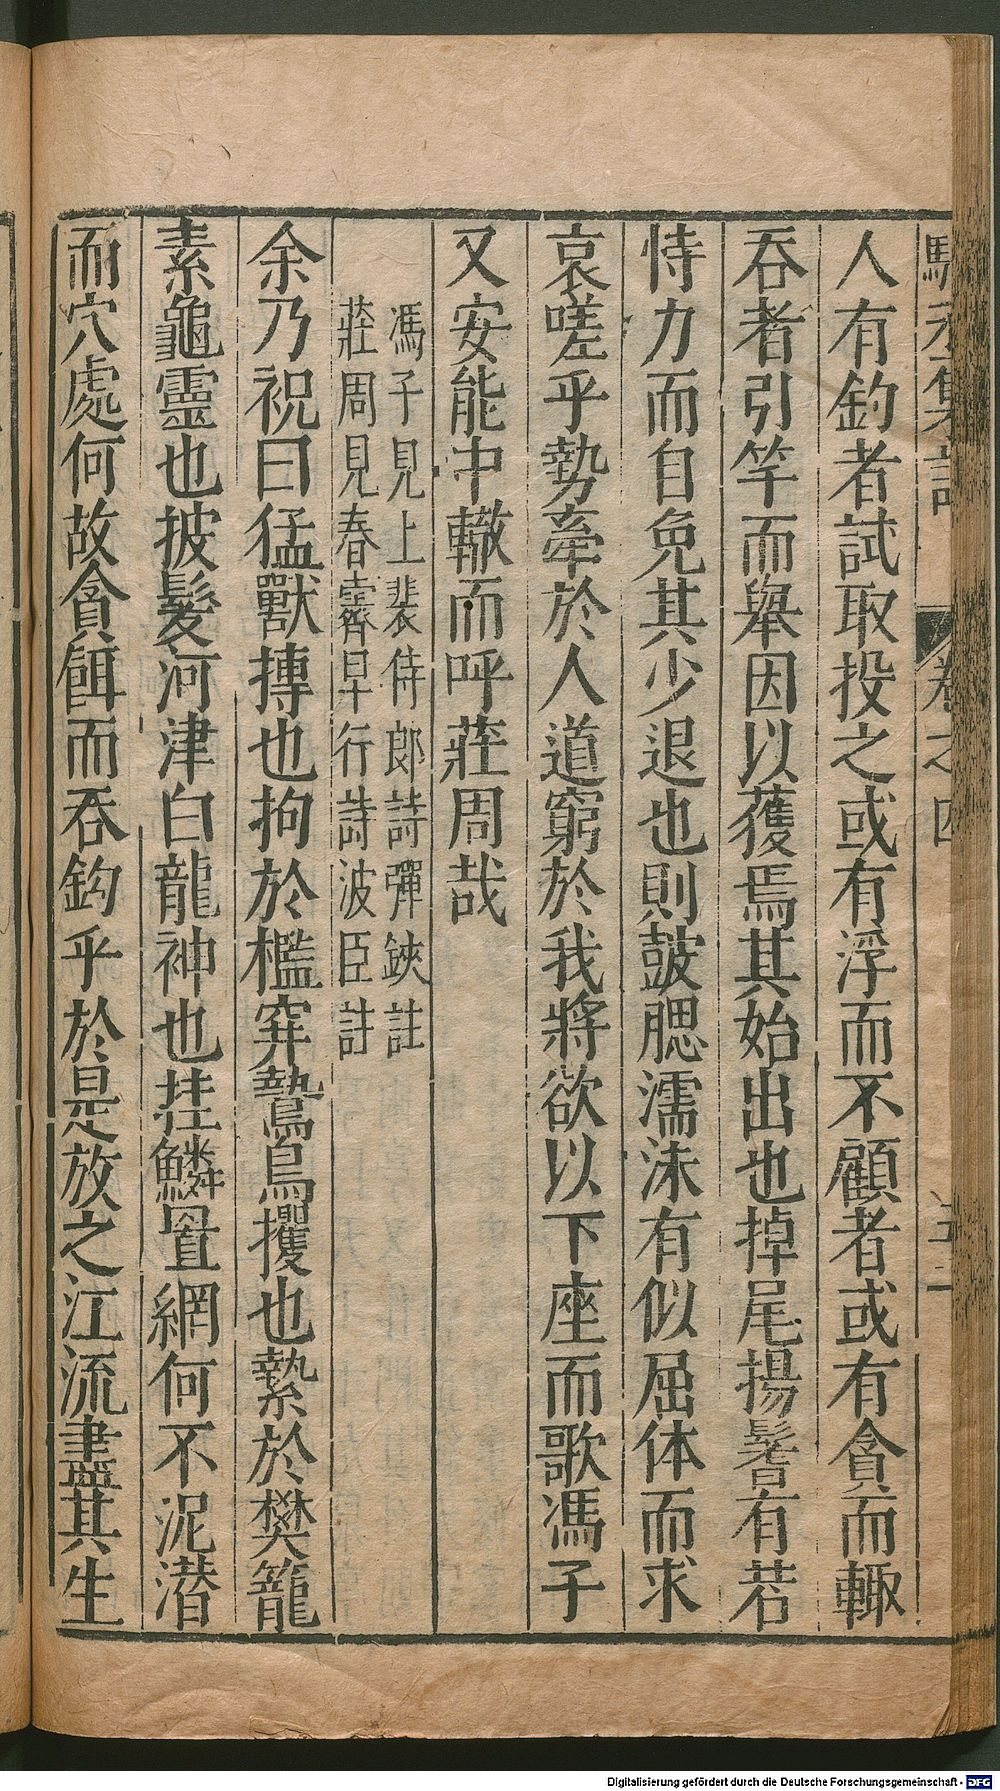 人有釣者試取投之或有浮而不顧者或有貪而輙
吞者引竿而舉因以獲焉其始出也掉尾揚鬐有若
恃力而自免其少退也則皷腮濡沫有似屈体而求
哀嗟乎勢牽於人道窮於我將欲以下座而歌馮子
又安能中轍而呼莊周哉
馮子見上裴侍郎詩彈鋏註
莊周見春霽早行詩波臣註
余乃祝曰猛獸摶也拘於檻穽鷙鳥攫也縶於樊籠
素龜靈也披髮河津白龍神也挂鱗罝網何不泥潜
而穴處何故貪餌而吞鈎乎於是放之江流盡其生
卷之四
Digitalisierung gefördert durch die Deutsche Forschungsgemeinschaft - DFG